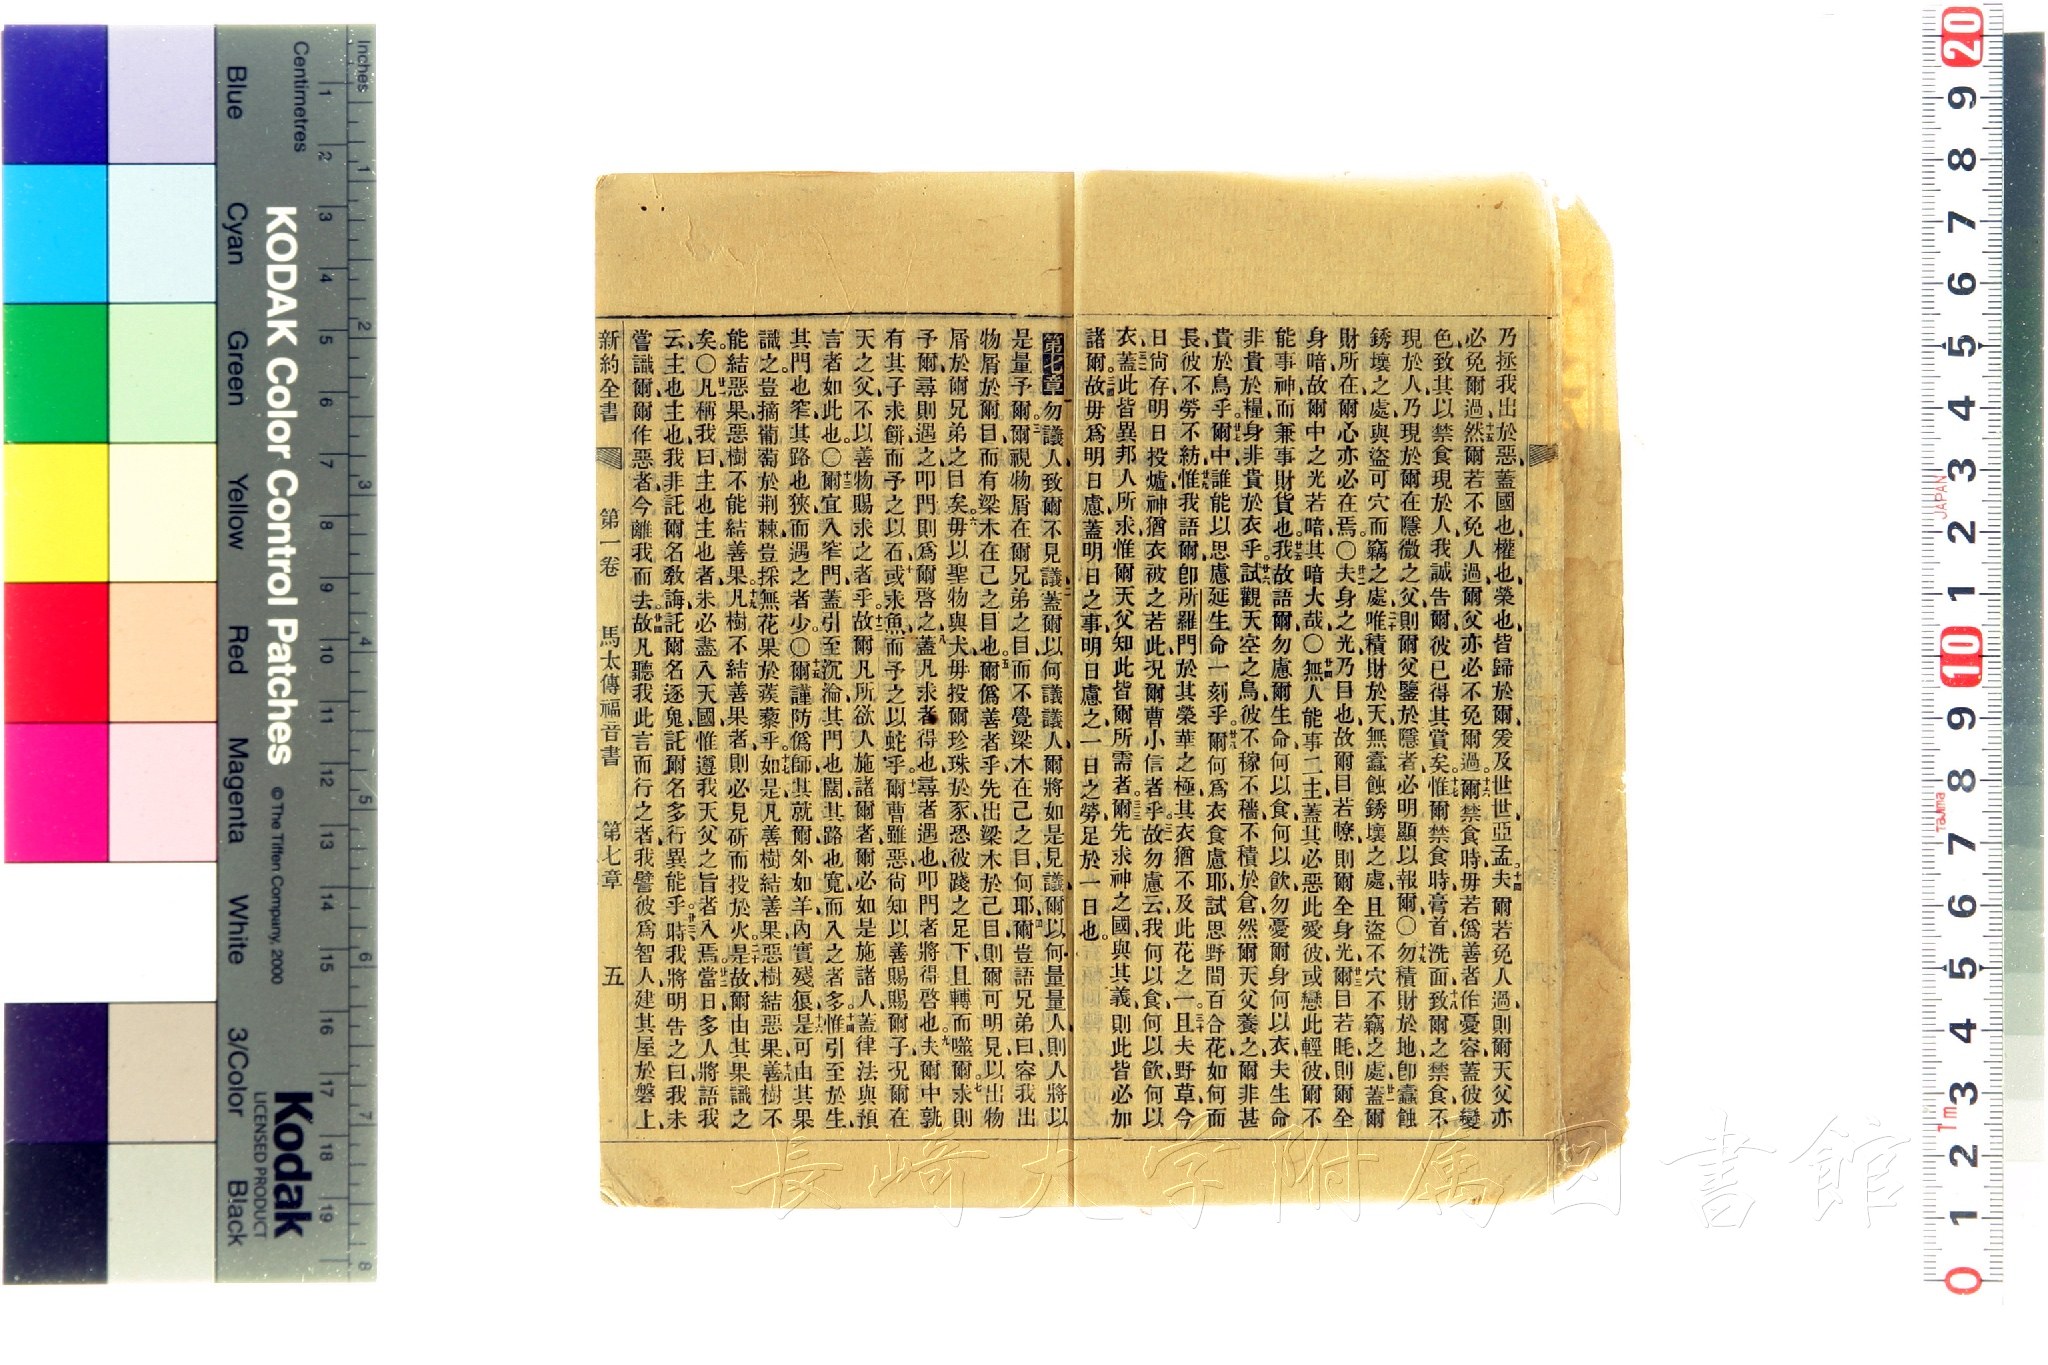 乃拯我出於惡蓋國也權也榮也皆歸於爾爰及世世亞孟夫爾若免人過則爾天父亦
必免爾過然爾若不免人過爾父亦必不免爾過爾禁食時毋若僞善者作憂容蓋彼變
色致其以禁食現於人我誠告爾彼已得其賞矣惟爾禁食時膏首洗面致爾之禁食不
現於人乃現於爾在隱微之父則爾父鑒於隱者必明顯以報爾〇勿積財於地卽蠹蝕
銹壞之處與盜可穴而竊之處唯積財於天無蠹蝕銹壞之處且盜不穴不竊之處蓋爾
財所在爾心亦必在焉〇夫身之光乃目也故爾目若瞭則爾全身光爾目若眊則爾全
身暗故爾中之光若暗其暗大哉〇無人能事二主蓋其必惡此愛彼或戀此輕彼爾不
能事神而兼事財貨也我故語爾勿慮爾生命何以食何以飲勿憂爾身何以衣夫生命
非貴於糧身非貴於衣乎試觀天空之鳥彼不稼不穡不積於倉然爾天父養之爾非甚
貴於鳥乎爾中誰能以思慮延生命一刻乎爾何爲衣食慮耶試思野間百合花如何而
長彼不勞不紡惟我語爾卽所羅門於其榮華之極其衣猶不及此花之一且夫野草今
日尙存明日投爐神猶衣被之若此况爾曹小信者乎故勿慮云我何以食何以飮何以
衣蓋此皆異邦人所求惟爾天父知此皆爾所需者爾先求神之國與其義則此皆必加
諸爾故毋爲明日慮蓋明日之事明日慮之一日之勞足於一日也
第七章勿議人致爾不見議蓋爾以何議議人爾將如是見議爾以何量量人則人將以
是量予爾爾視物屑在爾兄弟之目而不覺梁木在己之目何耶爾豈語兄弟曰容我出
物屑於爾目而有梁木在己之目也爾僞善者乎先出梁木於己目則爾可明見以出物
屑於爾兄弟之目矣毋以聖物與犬毋投爾珍珠於豕恐彼踐之足下且轉而噬爾求則
予爾尋則遇之叩門則爲爾啓之蓋凡求者得也尋者遇也叩門者將得啓也夫爾中孰
有其子求餅而予之以石或求魚而予之以蛇乎爾曹雖惡尙知以善賜賜爾子况爾在
天之父不以善物賜求之者乎故爾凡所欲人施諸爾者爾必如是施諸人蓋律法與預
言者如此也〇爾宜入窄門蓋引至沉淪其門也闊其路也寬而入之者多惟引至於生
其門也窄其路也狹而遇之者少〇爾謹防僞師其就爾外如羊內實殘狼是可由其果
識之豈摘葡萄於荆棘豈採無花果於蒺藜乎如是凡善樹結善果惡樹結惡果善樹不
能結惡果惡樹不能結善果凡樹不結善果者則必見斫而投於火是故爾由其果識之
矣〇凡稱我曰主也主也者未必盡入天國惟遵我天父之旨者入焉當日多人將語我
云主也主也我非託爾名敎誨託爾名逐鬼託爾名多行異能乎時我將明告之曰我未
嘗識爾爾作惡者今離我而去故凡聽我此言而行之者我譬彼爲智人建其屋於磐上
新約全書 第一卷 馬太傳福音書 第七章 五
長崎大学附属図書館
Inches
Centimetres
Blue Cyan Green Yellow Red Magenta White 3/Color Black
KODAK Color Control Patches © The Tiffen Company, 2000
Kodak
LICENSED PRODUCT
1 2 3 4 5 6 7 8
1 2 3 4 5 6 7 8 9 10 11 12 13 14 15 16 17 18 19
20 9 8 7 6 5 4 3 2 1 10 9 8 7 6 5 4 3 2 1 0
JAPAN
Tajima